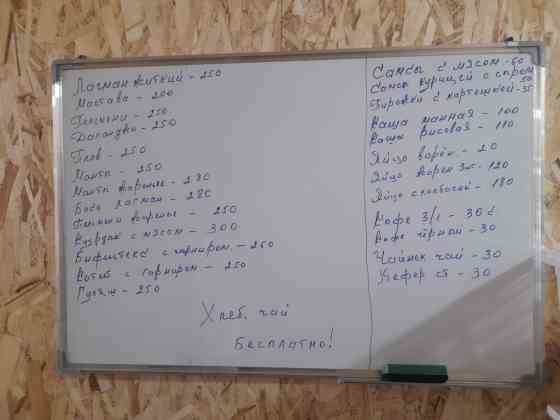 Лагман житкий - 250
Мастава - 200
Пельмени - 250
- 250
Плов - 250
Манты - 250
Манты жареные - 280
Босо лагман - 280
Пельмени жареные - 250
с мясом - 300
Бифштекс с гарниром - 250
Котлет с гарниром - 250
Гуляш - 250
Хлеб, чай
Бесплатно!
Самсы с мясом - 60
курицей с сыром 50
Пирожки с картошкой - 35
Каша манная - 100
Каша рисовая - 110
Яйцо варён - 20
Яйцо жарен - 120
Яйцо с колбасой - 180
Кофе 3/1 - 30
Кофе чёрном - 30
Чайнек чай - 30
Кефер ст - 30